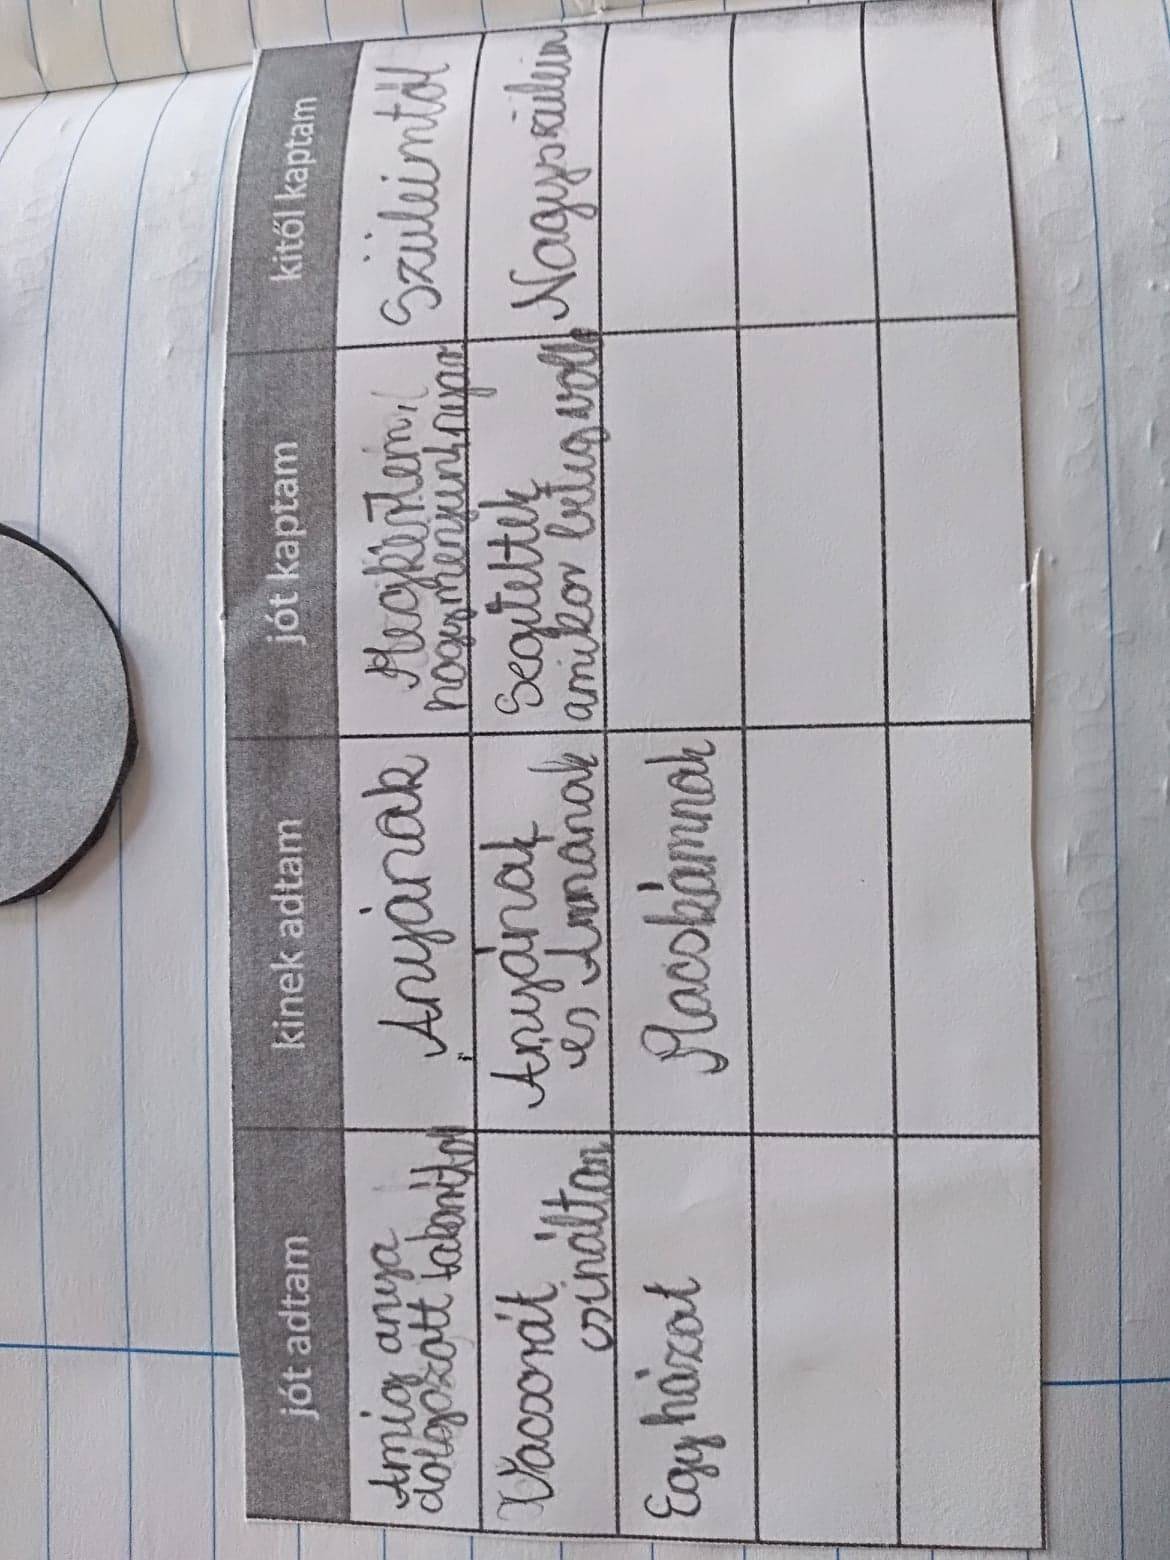 jót adtam
kinek adtam
jót kaptam
kitől kaptam
Amíg anya
dolgozott takarítot
Anyának
Megkértem,
hogy menjünk
Szüleimtől
Vacsorát
csináltan
Anyának
és Annának
Segítettek
amikor beteg volt
Nagyszüleim
Egy házat
Macskámnak